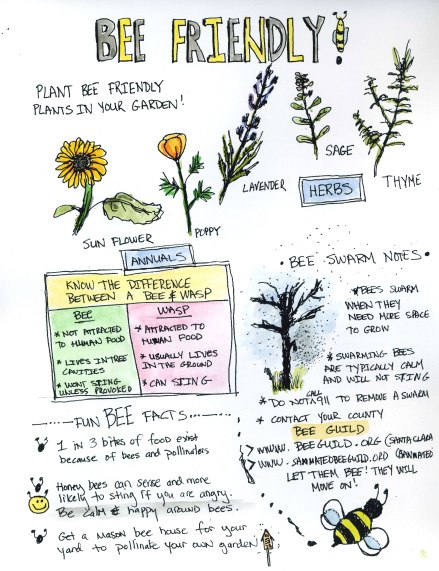 BEE FRIENDLY!
PLANT BEE FRIENDLY
PLANTS IN YOUR GARDEN!
SAGE
LAVENDER
HERBS
THYME
SUN FLOWER
POPPY
ANNUALS
KNOW THE DIFFERENCE
BETWEEN A BEE & WASP
BEE
* NOT ATTRACTED
TO HUMAN FOOD
* LIVES IN TREE
CAVITIES
* WON'T STING
UNLESS PROVOKED
WASP
* ATTRACTED TO
HUMAN FOOD
* USUALLY LIVES
IN THE GROUND
* CAN STING
• BEE SWARM NOTES •
* BEES SWARM
WHEN THEY
NEED MORE SPACE
TO GROW
* SWARMING BEES
ARE TYPICALLY CALM
AND WILL NOT STING
* DO NOT CALL 911 TO REMOVE A SWARM
* CONTACT YOUR COUNTY
BEE GUILD
> WWWW.BEEGUILD.ORG (SANTA CLARA
> WWW.SANMATEOBEEGUILD.ORG (SANMATEO
LET THEM BEE! THEY WILL
MOVE ON!
FUN BEE FACTS
1 in 3 bites of food exist
because of bees and pollinators
Honey bees can sense and more
likely to sting if you are angry.
Be calm & happy around bees.
Get a mason bee house for your
yard to pollinate your own garden